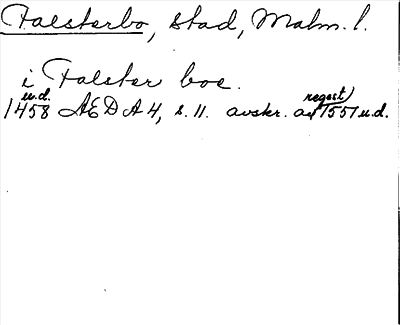 Falsterbo, stad, Malm. l.
i Falster boe.
u.d. regest)
1458 ÆDA 4, s. 11. avskr. av 1551 u.d.